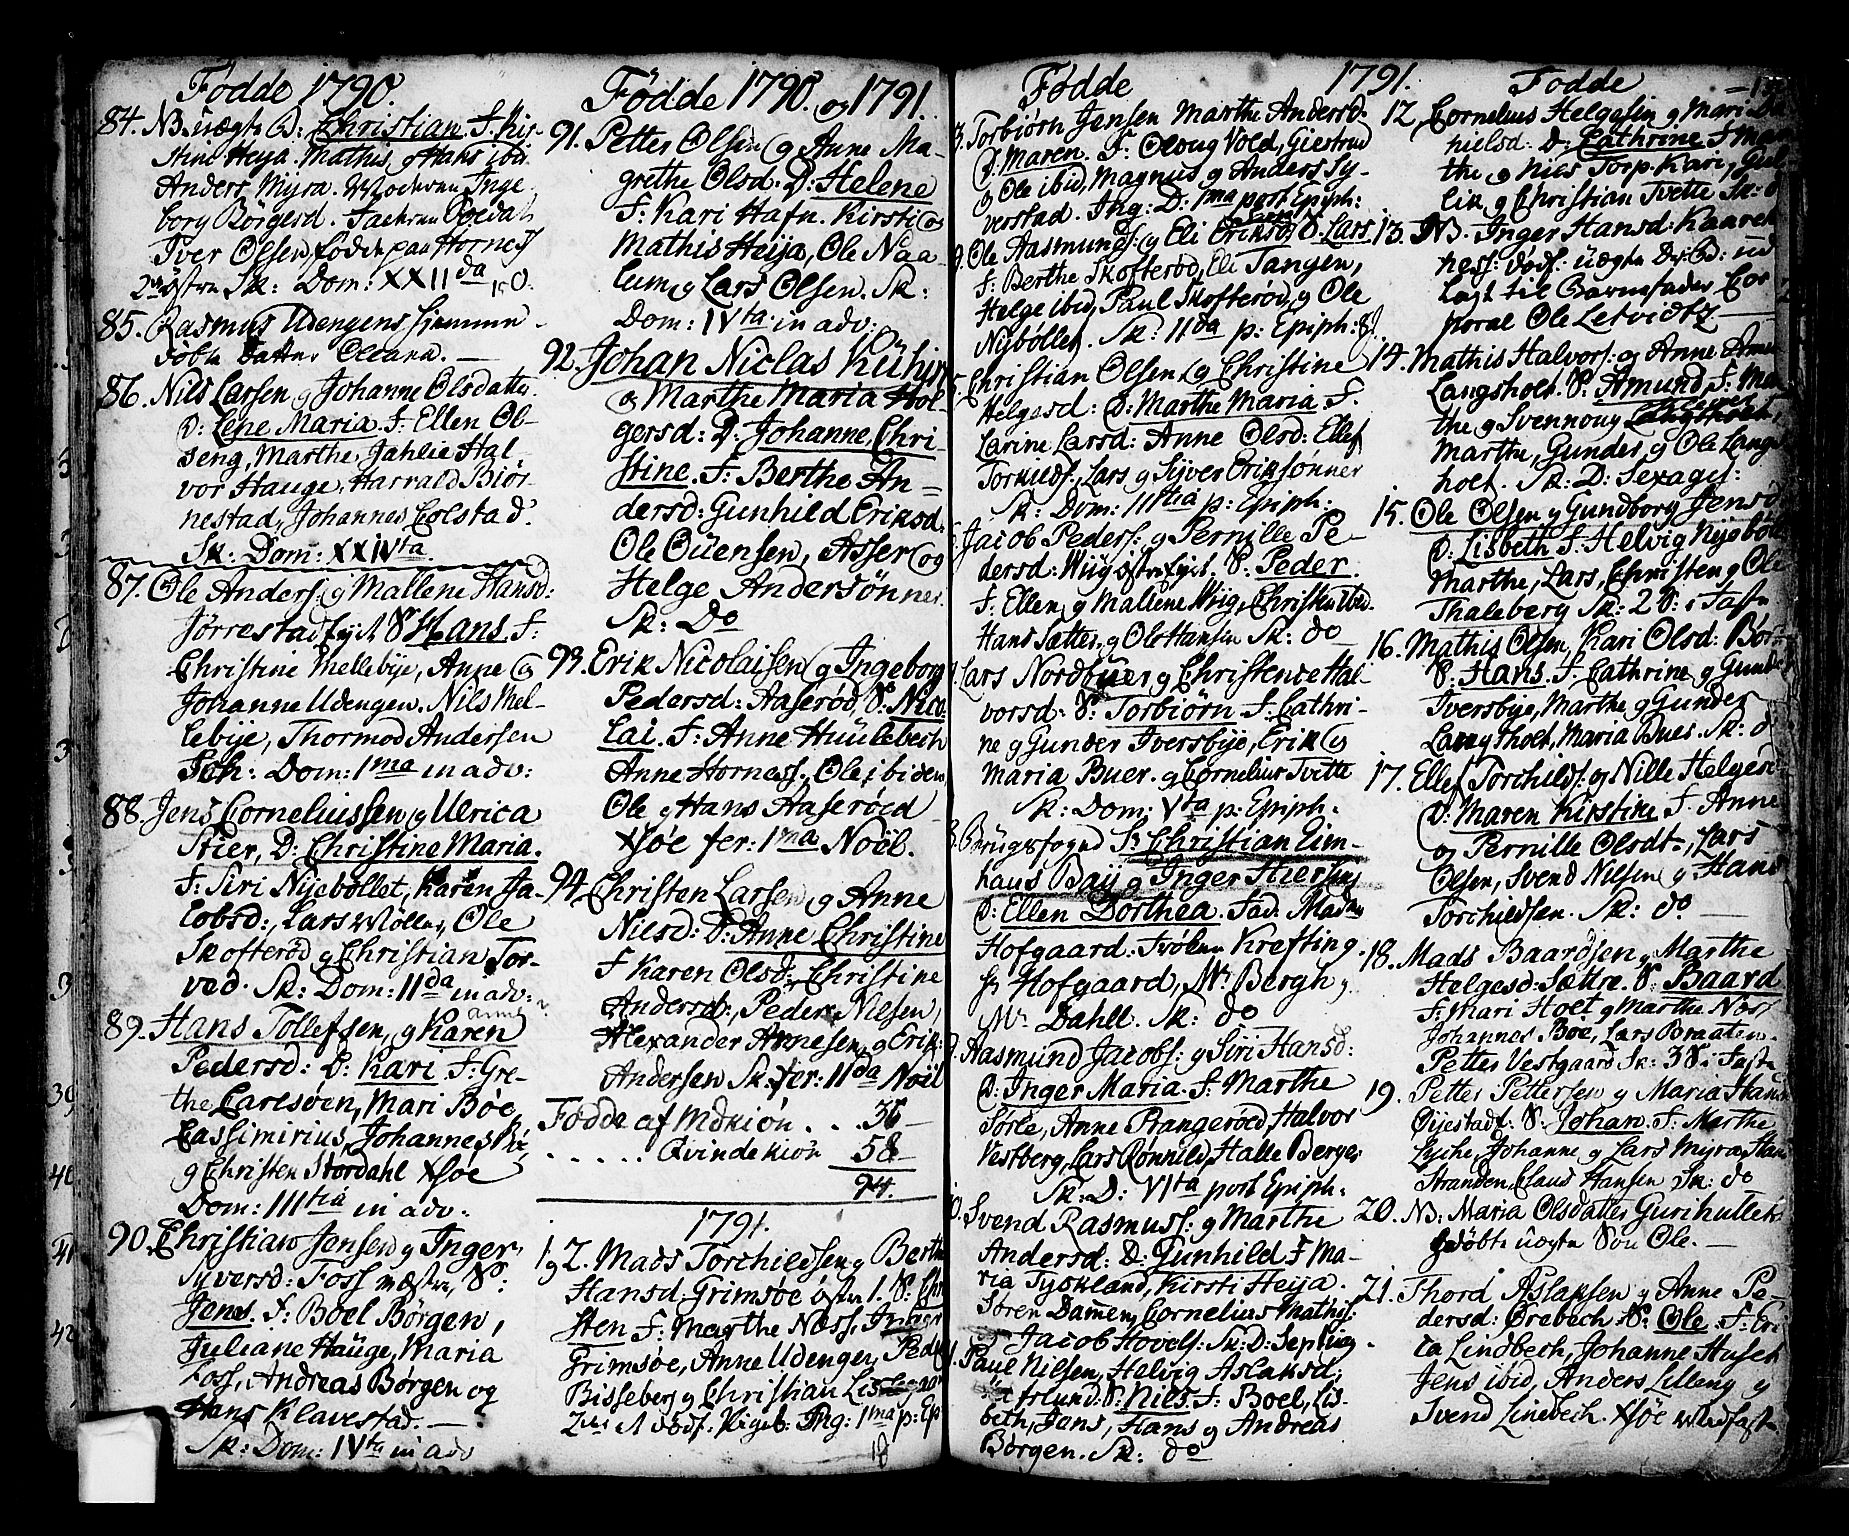 Fødde 1790.
84. NB. uægte D: Christian. F. Kir-
stine Heÿa. Mathis, og Hans ibid.
Anders Myra. Moderen Inge
borg Börgersd. Faderen Soldat
Iver Olsen, födde paa Hornes
Sk: Dom: XXIIda
85. Rasmus Udengens hjemme
döbte datter Oleana. —
86. Nils Larsen og Johanne Olsdatter
D: Lene Maria. F. Ellen Ol-
seng, Marthe Jahlie Hal
vor Hauge, Harrald Biör-
nestad, Johannes Colstad.
Sk: Dom: XXIVta
87. Ole Anders: og Mallene Hansd:
Jørrestad S. Hans F:
Christine Mellebÿe, Anne og
Johanne Udengen. Nils Mel-
lebÿe, Thormod Andersen
Dom: 1ma in adv:
88. Jens Corneliussen og Ulrica
Stier, D: Christine Maria.
F: Siri Nÿebøllet, Karen Ja-
cobsd:, Lars Møller, Ole
Skofterød og Christian Tor-
ved. Sk: Dom: IIda in adv:
Anne
89. Hans Tollefsen, og Karen
Pedersd: D: Kari F: Gre-
the Carlsøen, Mari Bøe,
Cassimirius, Johannes
og Christen Stordahl Xsøe
Dom: IIItia in adv.
90. Christian Jensen og Inger
Syversd: Foss næstre, S:
Jens. F: Boel Børgen,
Juliane Hauge, Maria
Foss, Andreas Børgen og
Hans Klavestad. —
Sk: Dom: IVta in adv
Fødde 1790. og 1791.
91. Petter Olsen og Anne Ma-
grethe Olsd. D: Helene
F: Kari Hafn. Kirsti og
Mathis Heija, Ole Naa-
lum, og Lars Olsen. Sk:
Dom: IVta in adv:
92. Johan Niclas Kühn
og Marthe Maria Hol-
gersd: D: Johanne Chri-
stine. F: Berthe An-
dersd: Gunhild Eriksd.
Ole Ouensen, Asser og
Helge Andersønner.
Sk: Do
93. Erik Nicolaisen og Ingeborg
Pedersd: Aaserød, S: Nico-
lai. F: Anne Huulebech
Anne Hornes, Ole ibidem,
Ole og Hans Haserøed
Xsøe fer: 1ma Noël.
94. Christen Larsen, og Anne
Nilsd: D: Anne Christine
F Karen Olsd: Christine
Andersd:, Peder Nilsen,
Alexander Annesen, og Erik:
Andersen Sk: fer: IIda Noël
Fødde af Mdkiön . . 36
. . . . . Qvindekiön 58
94.
1791.
1 og 2. Mads Torchildsen og Berthe
Hansd: Grimsøe 1. S: Chri
sten F: Marthe Næss, Inger
Grimsøe, Anne Udengen, Peder
Bisseberg og Christian
1ma p: Ep
Fødde 1791.
3. Torbiörn Jensen Marthe Andersd.
D: Maren. F: Oloug Vold, Giestrud
og Ole ibid, Magnus og Anders Sy-
verstad. Ing: D: 1ma post Epiph:
4. Ole Aasmunds: og Eli Eriksd S: Lars
F: Berthe Skofterød, Eli Tangen,
Helge ibid, Paul Skofterød, og Ole
Nÿbøllet. Sk: IIda p: Epiph:
5. Christian Olsen og Christine
Helgesd: D: Marthe Maria F.
Larine Larsd: Anne Olsd: Ellef
Torkilds:, Lars og Syver Eriksønner
Sk: Dom: IIItia p: Epiph:
6. Jacob Peders: og Pernille Pe-
dersd: Wiig S: Peder.
F: Ellen og Mallene Wiig, Christen ibid.
Hans Sætter, og Ole Hansen Sk: do
7. Lars Nordbuer og Christence Hal-
vorsd: S: Torbiörn F: Cathri-
ne og Gunder Iversbÿe, Erik og
Maria Buer. og Cornelius Tvette
Sk: Dom: Vta p: Epiph:
8. Brügsfogd Sr. Christian Eim-
haus Baÿ og Inger Stiersens
D: Ellen Dorthea. Fad. Madm
Hofgaard: Frölen Krefting.
Hofgaard, Mr. Bergh og
Mr. Dahll. Sk: do
9. Aasmund Jacobs: og Siri Hansd:
D: Inger Maria. F: Marthe
Sørle, Anne Prangerød, Halvor
Vestberg, Lars Rønnild, Halle Berger
Sk: D: VIta post Epiph:
10. Svend Rasmuss: og Marthe
Andersd: D: Gunhild F Ma-
ria Tyskland, Kirsti Heÿa.
Sören Dammen, Cornelius Mathis:
Jacob Hovels: Sk: D: Septuag.
11. Paul Nilsen, Helvig Aslaksd:
S: Nils: F: Boel, Lis-
beth, Jens, Hans og Andreas
Børgen. Sk: do
Fødde
12. Cornelius Helgesen og Mari Da
nielsd: D: Cathrine F Mar
the og Nils Torp. Kari, Gul-
lik, og Christian Tvette Sk: d
13. NB. Inger Hansd: Kaaren
ness: uægte
lagt til Barnefader Cor
poral Ole Letvidtz —
14. Mathis Halvors: og Anne Amun
Langsholt. S: Amund F: Mar
the og Svennoug
Marthe, Gunder, og Ole Langs
holt. Sk: D: Sexages:
15. Ole Olsen og Gundborg Jensd
D: Lisbeth F: Helvig Nÿebøll
Marthe, Lars, Christen og Ole
Thaleberg Sk: 2 S: i Faste
16. Mathis Olsen, Kari Olsd: Bør-
S: Hans. F. Cathrine og Gunder
Iversbÿe, Marthe og Gunder
Langsholt, Maria Bues. Sk: d
17. Ellef Torchilds: og Nille Helgesd
D: Maren Kirstine F. Anne
og Pernille Olsdt, Lars
Olsen, Svend Nilsen og Hans
Torchildsen. Sk: do —
18. Mads Baardsen og Marthe
Helgesd: Sættre. S: Baard
F: Mari Holt og Marthe Næs
Johannes Boe, Lars Braaten.
Petter Vestgaard Sk: 3 S: i Faste
19. Petter Pettersen og Maria Hans
S: Johan. F: Marthe
Lyche, Johanne og Lars Myra, Hans
Stranden, Claus Hansen Sk: do
20. NB: Maria Olsdatter Gurihullets
döbte uægte Søn Ole. —
21. Thord Aslaksen og Anne Pe-
dersd: Ørebech S: Ole. F: Eri
ca Lindbech, Johanne Huseb
Jens ibid, Anders Lilleng og
Svend Linebech. Xsøe Midfaste